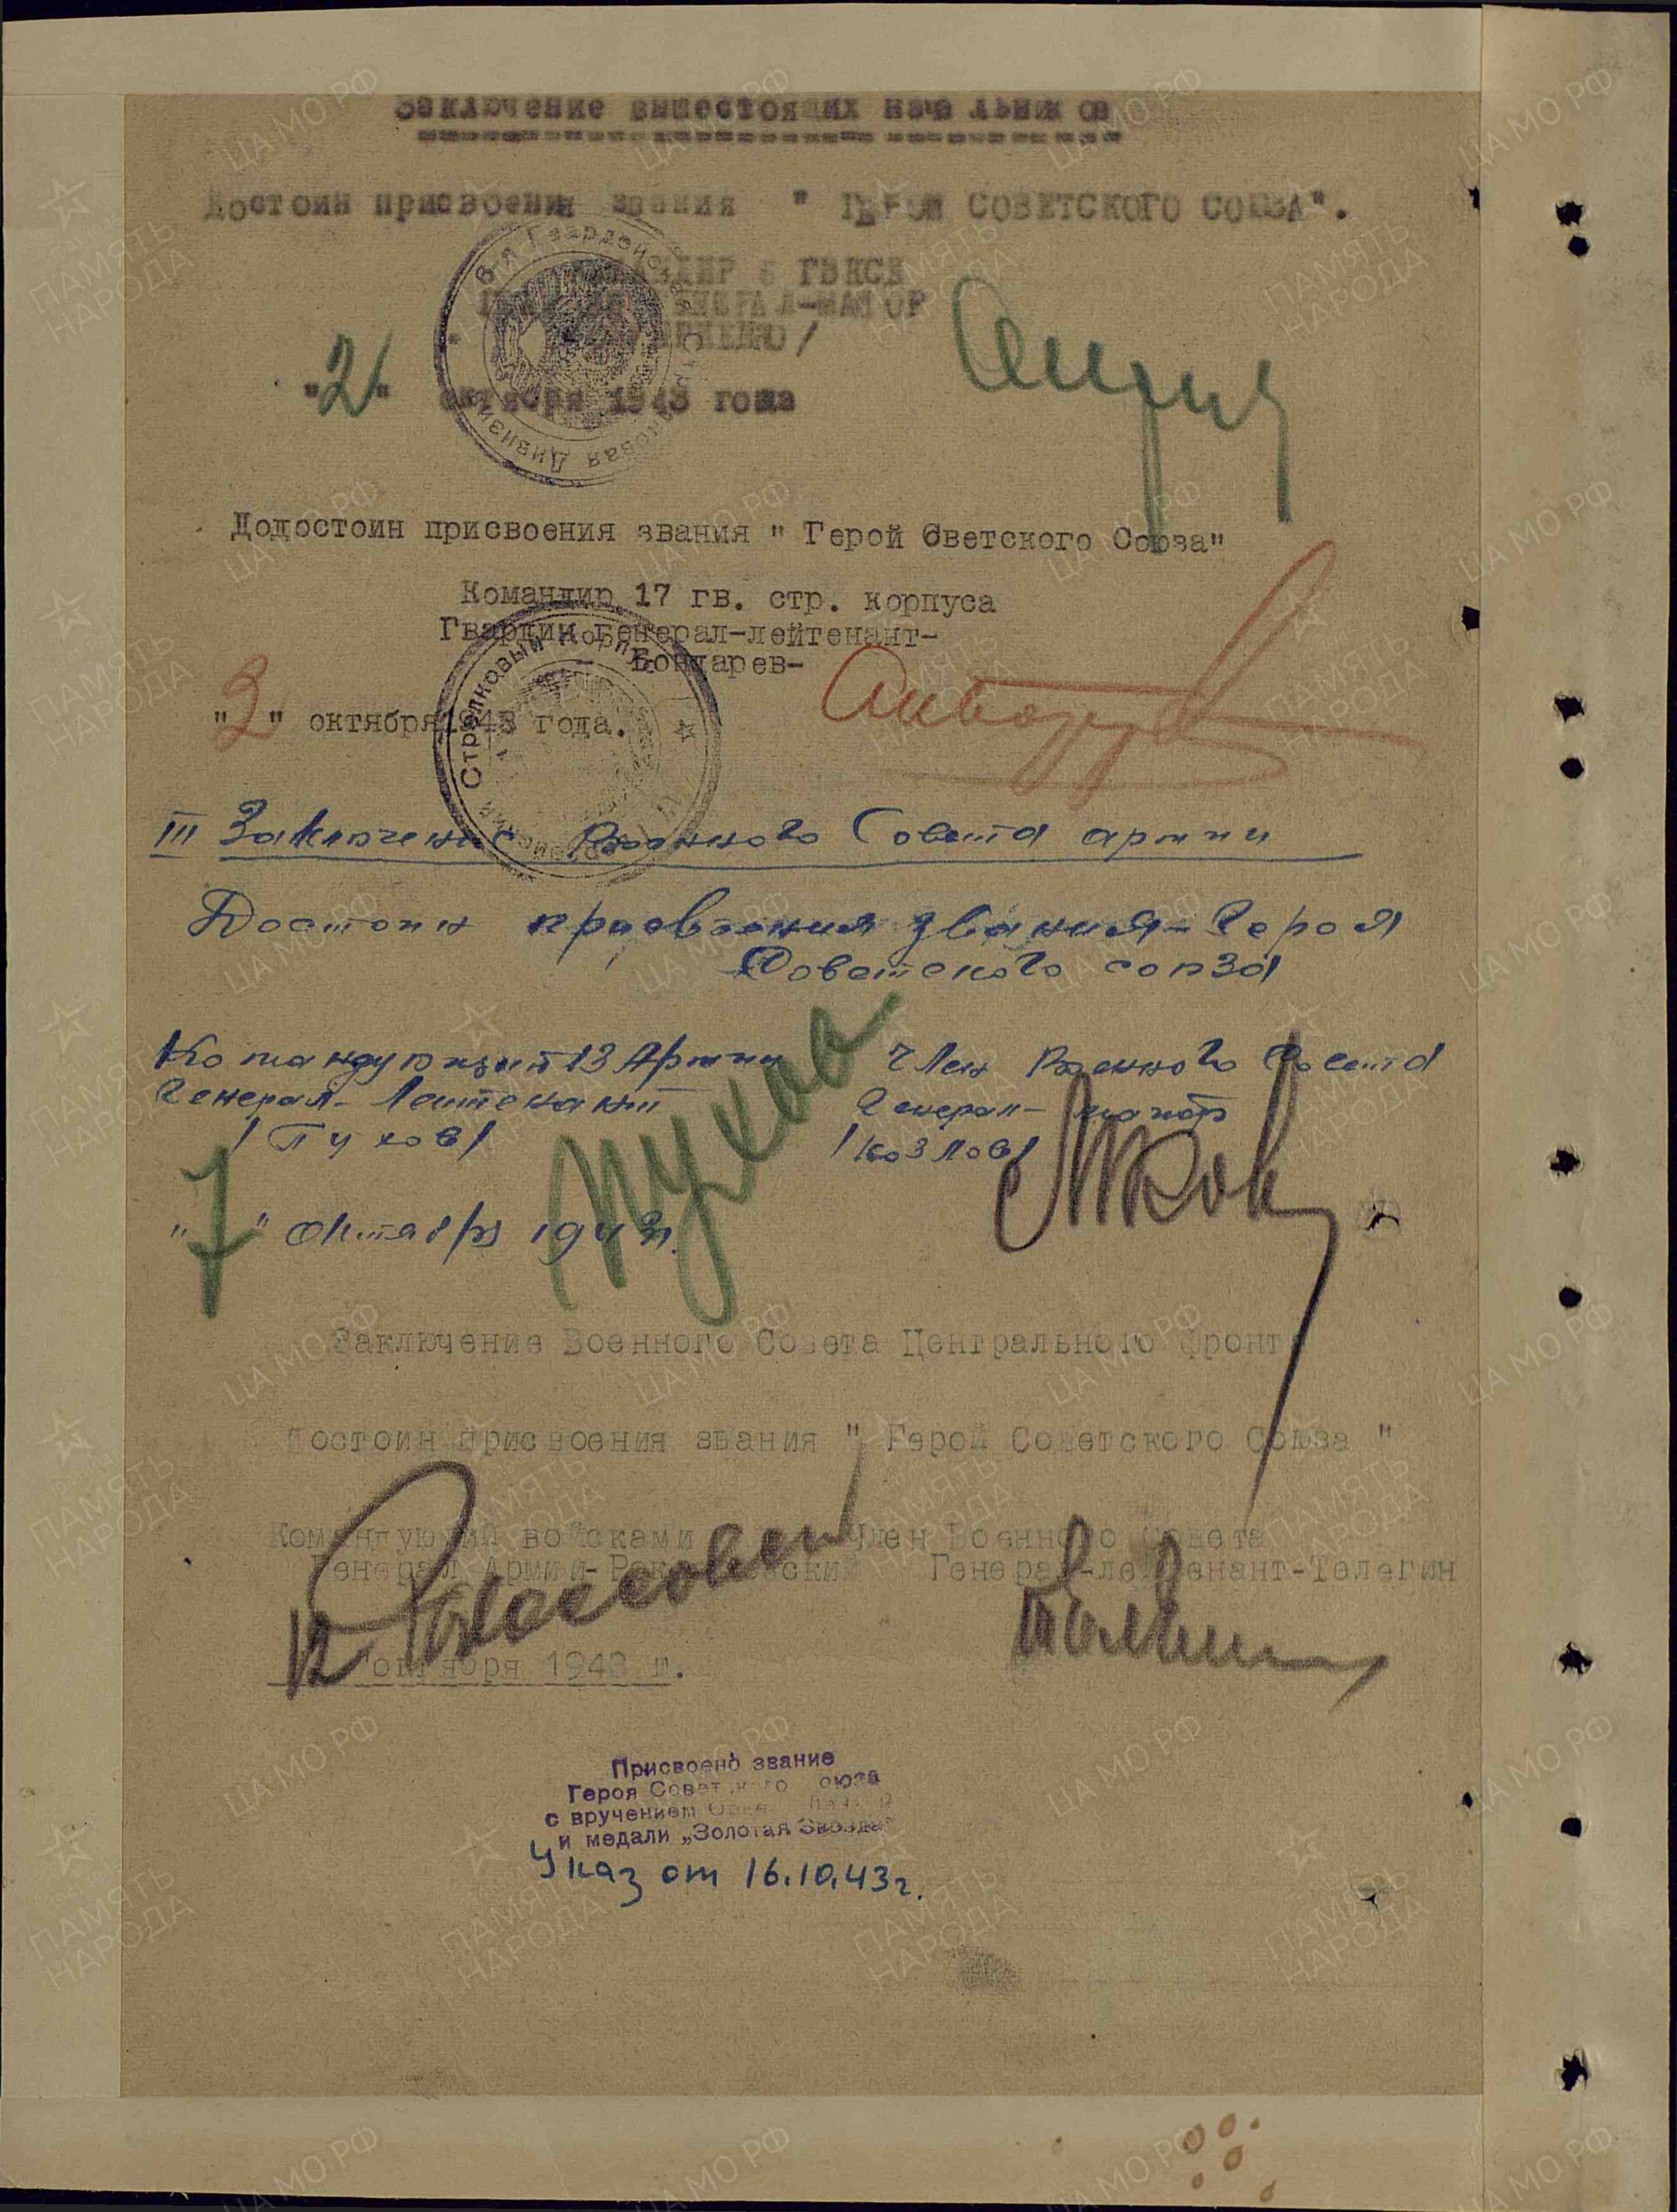 Заключение вышестоящих начальников
Достоин присвоения звания " ГЕРОЙ СОВЕТСКОГО СОЮЗА".
КОМАНДИР 6 ГВКСД
ГЕНЕРАЛ-МАЙОР
"2" октября 1943 года
Додостоин присвоения звания " Герой Светского Союза"
Командир 17 гв. стр. корпуса
Гвардии генерал-лейтенант-
Бондарев-
"3" октября 1943 года.
III Заключение Военного Совета армии
Достоин присвоения звания - Героя
Советского союза
Командующий 13 Армии
Генерал-Лейтенант
/Пухов/
Пухов
Член Военного Совета
Генерал-майор
/Козлов/
"7" Октября 1943г.
Заключение Военного Совета Центрального фронта
Достоин присвоения звания " Герой Советского Союза "
Командующий войсками
Генерал Армии-Рокоссовский
Член Военного Совета
Генерал-лейтенант-Телегин
К Рокоссовский
Телегин
октября 1943 г.
Присвоено звание
Героя Советского Союза
с вручением Ордена Ленина
и медали „Золотая Звезда"
Указ от 16.10.43г.
ЦАМО РФ
ПАМЯТЬ
НАРОДА